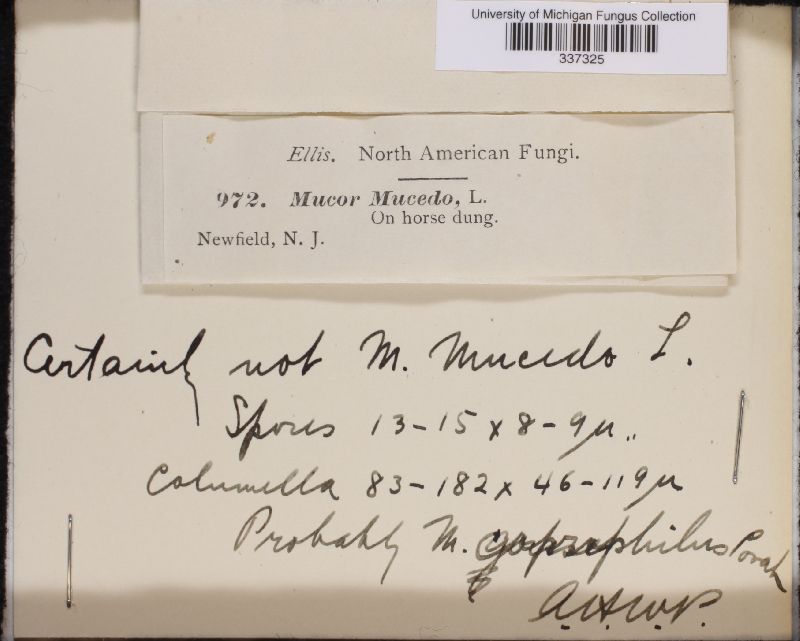 University of Michigan Fungus Collection
337325
Ellis. North American Fungi.
972. Mucor Mucedo, L.
On horse dung.
Newfield, N. J.
Certainly not M. Mucedo L.
Spores 13-15 x 8-9µ.
Columella 83-182 x 46-119µ
Probably M. Povah
A.H.W.P.